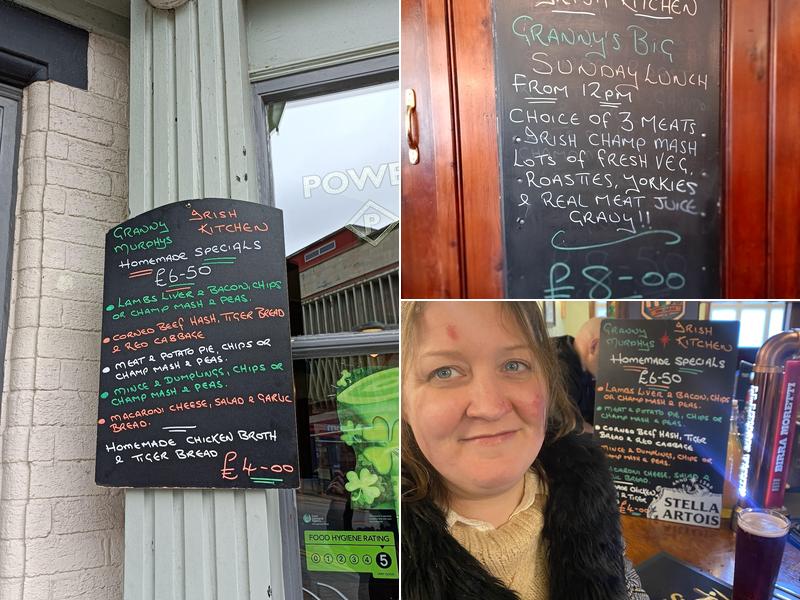 GRANNY MURPHYS
IRISH KITCHEN
HOMEMADE SPECIALS
£6-50
LAMBS LIVER & BACON, CHIPS
OR CHAMP MASH & PEAS.
CORNED BEEF HASH, TIGER BREAD
& RED CABBAGE
MEAT & POTATO PIE, CHIPS OR
CHAMP MASH & PEAS.
MINCE & DUMPLINGS, CHIPS OR
CHAMP MASH & PEAS.
MACARONI CHEESE, SALAD & GARLIC
BREAD.
HOMEMADE CHICKEN BROTH
& TIGER BREAD
£4-00
POWE
P
FOOD HYGIENE RATING
0 1 2 3 4 5
IRISH KITCHEN
GRANNY'S BIG
SUNDAY LUNCH
FROM 12PM
CHOICE OF 3 MEATS
IRISH CHAMP MASH
LOTS OF FRESH VEG,
ROASTIES, YORKIES
& REAL MEAT JUICE
GRAVY!!
£8-00
GRANNY MURPHYS
IRISH KITCHEN
HOMEMADE SPECIALS
£6-50
LAMBS LIVER & BACON, CHIPS
OR CHAMP MASH & PEAS.
MEAT & POTATO PIE, CHIPS OR
CHAMP MASH & PEAS.
CORNED BEEF HASH, TIGER
BREAD & RED CABBAGE
MINCE & DUMPLINGS, CHIPS
OR CHAMP MASH & PEAS.
£4-00
STELLA
ARTOIS
BIRRA MORETTI